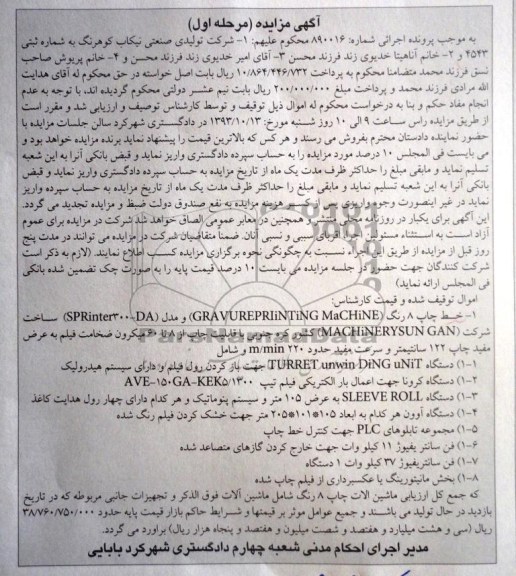 آگهی مزایده (مرحله اول)
به موجب پرونده اجرائی شماره: ۸۹۰۰۱۶ محکوم علیهم: ۱- شرکت تولیدی صنعتی نیکاب گوهرنگ به شماره ثبتی
۴۵۴۳ و ۲- خانم آناهیتا خدیوی زند فرزند محسن ۳- آقای امیر خدیوی زند فرزند محسن و ۴- خانم پریوش صاحب
نسق فرزند محمد متضامنا محکوم به پرداخت ۱۰/۸۶۴/۴۴۶/۷۳۲ ریال بابت اصل خواسته در حق محکوم له آقای هدایت
الله مرادی فرزند محمد و پرداخت مبلغ ۲۰۰/۰۰۰/۰۰۰ ریال بابت نیم عشر دولتی محکوم گردیده اند، با توجه به عدم
انجام مفاد حکم و بنا به درخواست محکوم له اموال ذیل توقیف و توسط کارشناس توصیف و ارزیابی شد و مقرر است
از طریق مزایده راس ساعت ۹ الی ۱۰ روز شنبه مورخ: ۱۳۹۳/۱۰/۱۳ در دادگستری شهرکرد سالن جلسات مزایده با
حضور نماینده دادستان محترم بفروش می رسند و هر کس که بالاترین قیمت را پیشنهاد نماید برنده مزایده خواهد بود و
می بایست فی المجلس ۱۰ درصد مورد مزایده را به حساب سپرده دادگستری واریز نماید و قبض بانکی آنرا به این شعبه
تسلیم نماید و مابقی مبلغ را حداکثر ظرف مدت یک ماه از تاریخ مزایده به حساب سپرده دادگستری واریز نماید و قبض
بانکی آنرا به این شعبه تسلیم نماید و مابقی مبلغ را حداکثر ظرف مدت یک ماه از تاریخ مزایده به حساب سپرده واریز
نماید در غیر اینصورت وجوه واریزی پس از کسر هزینه مزایده به نفع صندوق دولت ضبط و مزایده تجدید می گردد.
این آگهی برای یکبار در روزنامه محلی منتشر و همچنین در معابر عمومی الصاق خواهد شد شرکت در مزایده برای عموم
آزاد است به استثناء مسئولین اجرا، اقربای سببی و نسبی آنان. ضمنا متقاضیان شرکت در مزایده می توانند در مدت پنج
روز قبل از مزایده از طریق این اجراء نسبت به چگونگی نحوه برگزاری مزایده کسب اطلاع نمایند. (لازم به ذکر است
شرکت کنندگان جهت حضور در جلسه مزایده می بایست ۱۰ درصد قیمت پایه را به صورت چک تضمین شده بانکی
فی المجلس ارائه نماید)
اموال توقیف شده و قیمت کارشناس:
۱- خط چاپ ۸ رنگ (GRAVUREPRIiNTiNG MaCHiNE) و مدل (SPRinter۳۰۰-DA) ساخت
شرکت (MACHiNERYSUN GAN) کشور کره جنوبی با قابلیت چاپ از ۸ تا ۶۰ میکرون ضخامت فیلم به عرض
مفید چاپ ۱۲۲ سانتیمتر و سرعت مفید حدود ۲۲۰ m/min و شامل
۱-۱) دستگاه TURRET unwin DiNG uNiT جهت باز کردن رول فیلم و دارای سیستم هیدرولیک
۱-۲) دستگاه کرونا جهت اعمال بار الکتریکی فیلم تیپ AVE-۱۵۰GA-KEK۵/۱۳۰۰
۱-۳) دستگاه SLEEVE ROLL به عرض ۱۰۵ متر و سیستم پنوماتیک و هر کدام دارای چهار رول هدایت کاغذ
۱-۴) دستگاه آوون هر کدام به ابعاد ۱۰۵*۱۰۱*۲۰۵ متر جهت خشک کردن فیلم رنگ شده
۱-۵) مجموعه تابلوهای PLC جهت کنترل خط چاپ
۱-۶) فن سانتریفیوژ ۱۱ کیلو وات جهت خارج کردن گازهای متصاعد شده
۱-۷) فن سانتریفیوژ ۳۷ کیلو وات ۱ دستگاه
۱-۸) بخش مانیتورینگ یا عکسبرداری از فیلم چاپ شده
که جمع کل ارزیابی ماشین آلات چاپ ۸ رنگ شامل ماشین آلات فوق الذکر و تجهیزات جانبی مربوطه که در تاریخ
بازدید در حال تولید می باشند و جمیع عوامل موثر بر قیمتها و شرایط حاکم بازار قیمت پایه حدود ۳۸/۷۶۰/۷۵۰/۰۰۰
ریال (سی و هشت میلیارد و هفتصد و شصت میلیون و هفتصد و پنجاه هزار ریال) براورد می گردد.
مدیر اجرای احکام مدنی شعبه چهارم دادگستری شهرکرد بابایی